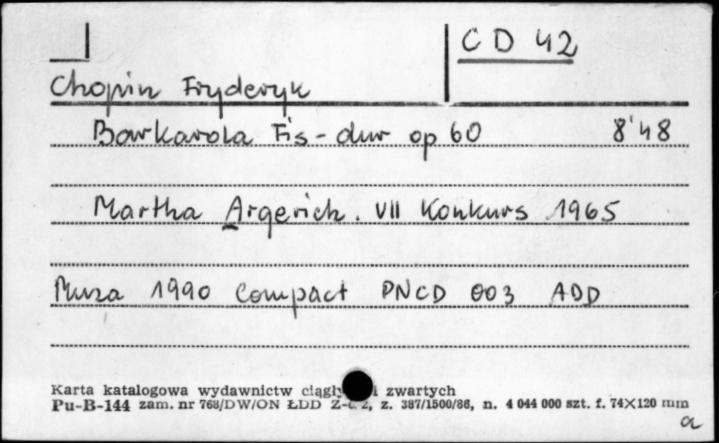 CD 42
Chopin Fryderyk
Barkarola Fis-dur op 60 8'48
Martha Argerich. VII Konkurs 1965
Muza 1990 Compact PNCD 003 ADD
Karta katalogowa wydawnictw i zwartych
Pu-B-144 zam. nr 768/DW/ON ŁDD z. 387/1500/86, n. 4 044 000 szt. f. 74X120 mm
a